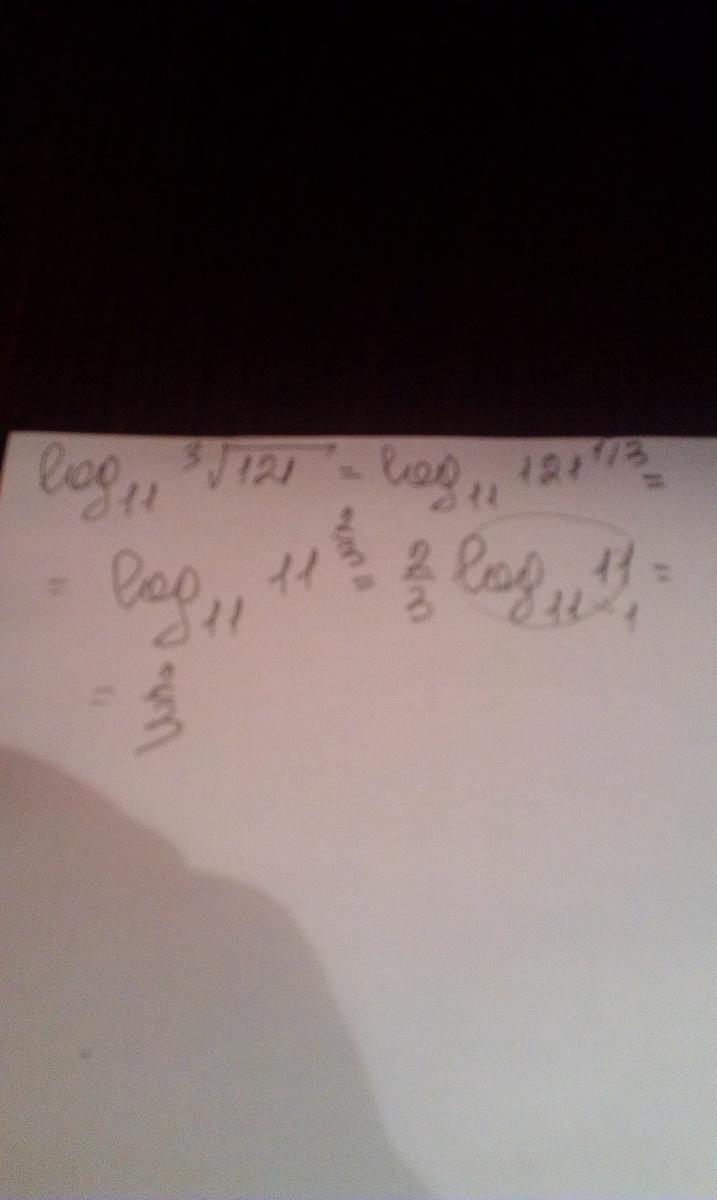 log₁₁ ³√121 = log₁₁ 121^1/3 =
= log₁₁ 11^2/3 = 2/3 log₁₁ 11 = 1
= 2/3